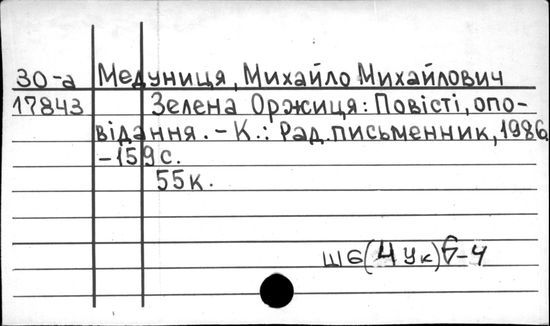 30-а Медуниця, Михайло Михайлович
17843 Зелена Оржиця: Повісті, опо-
відання. - К.: Рад. письменник, 1986.
- 159 с.
55к.
Ш6(4Ук)6-4